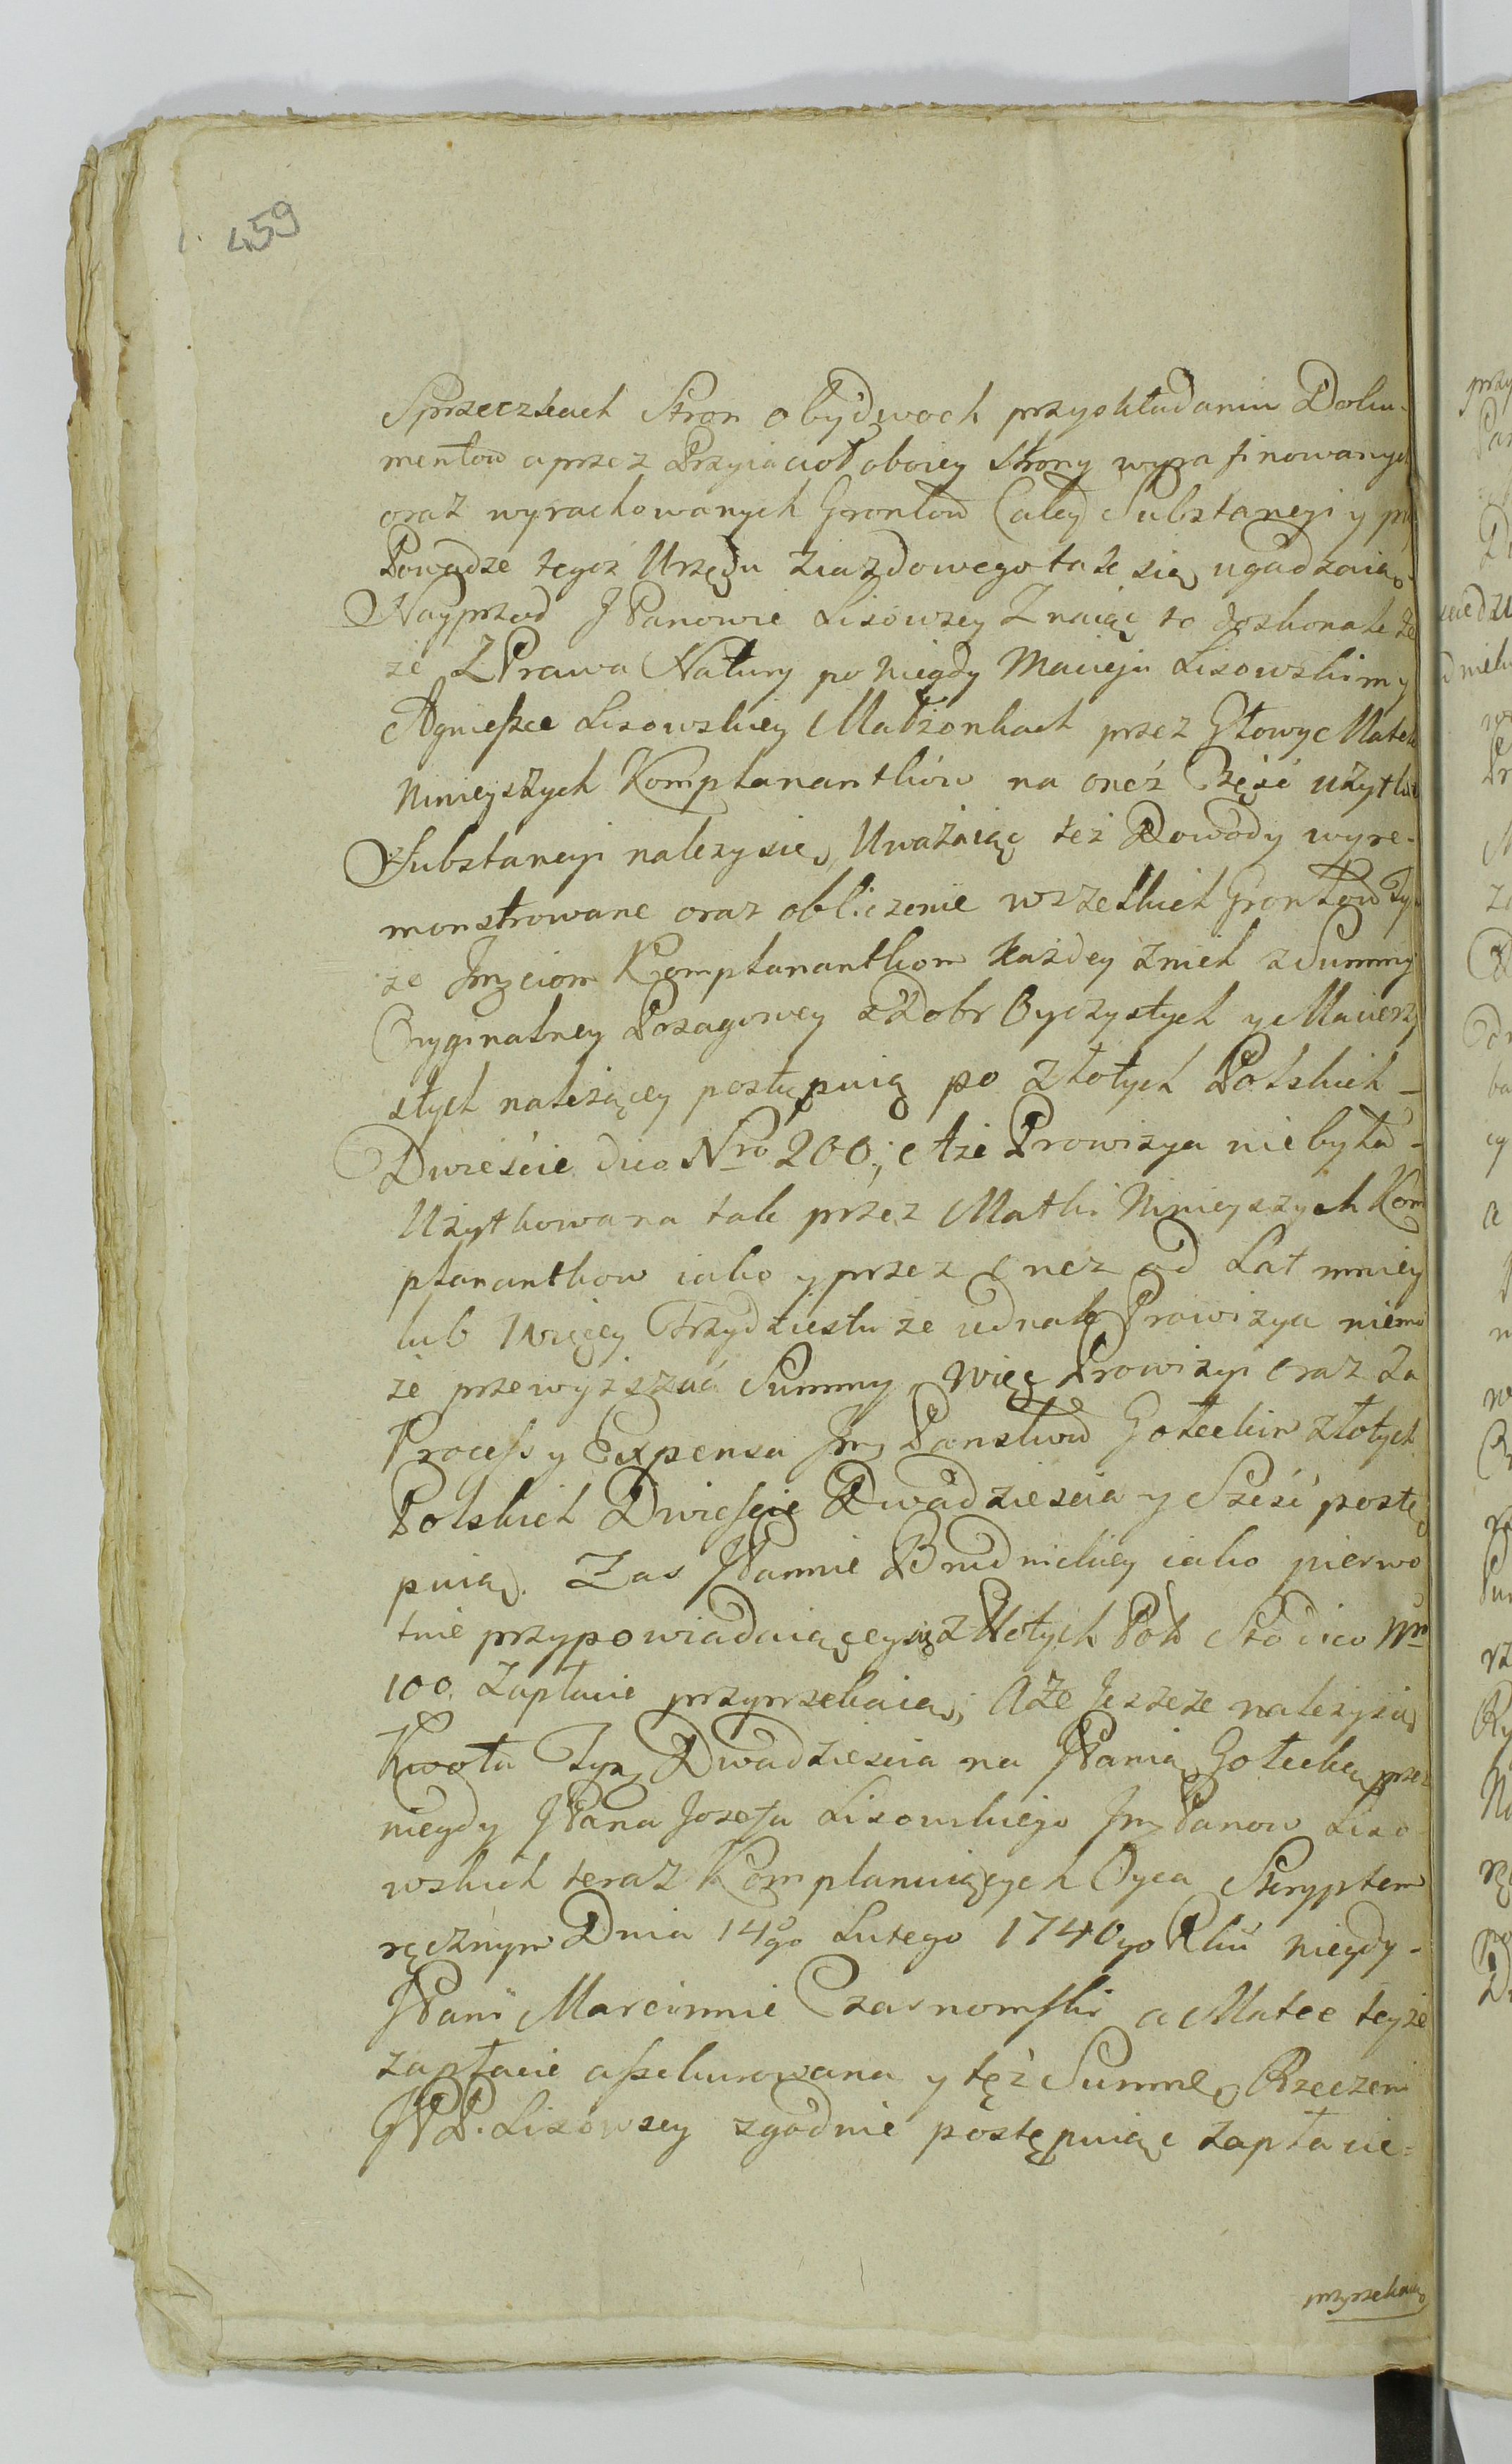 459
Sprzeczkach Stron obydwoch przyokładaniu Doku-
mentow a przez Przyiacioł oboiey Strony wyrafinowanych
oraz wyrachowanych Grontow Całey Substancyi y przy
Powadze tegoż Urzędu ziazdowego tak się ugadzaią.
Nayprzod JPanowie Lisowscy Znaiąc to doskonale że
że Z Prawa Natury po niegdy Macieju Lisowskim y
Agnieszce Lisowskiey Małżonkach przez Głowy Matek
Ninieyszych Komplanantkow na oneż Część użytku
Substancyi należy się, Uważaiąc też Dowody wyre-
monstrowane oraz obliczenie wszelkich Grontow Ty-
że Imęciom Komplanantkom każdey znich z Summy
Oryginalney Posagowey z Dobr Oyczystych y Macierzy
stych należącey postępuią po Złotych Polskich -
Dwieście dico Nro 200; A że Prowizya nie była -
Użytkowana tak przez Matki Ninieyszych Kom
planantkow iako y przez onez od Lat mniey
lub więcey Trzydziestu że iednak Prowizya niemo
że przewyższać Summy, Więc Prowizyi oraz Za
Process y Expensa Im Panstwu Gołeckim złotych
Polskich Dwieście Dwadziescia y Sześć postę
puią. Zas JPannie Brudnickiey iako pierwo
tnie przypowiadaiącey się Złotych Pol: Sto dico Nro
100. Zapłacic przyrzekaią; A że Jeszcze należy się
Kwota Tyn Dwadziescia na JPanią Gołecką przez
niegdy JPana Jozefa Lisowskiego Im Panow Liso
wskich teraz Komplanuiących Oyca Skryptem
ręcznym Dnia 14go Lutego 1740go Rku niegdy -
JPani Marciannie Czarnomski a Matce teyże
zapłacic assekurowana y też Summę Rzeczeni
JPP. Lisowscy zgodnie postępuiąc zapłacic =
przyrzekaią